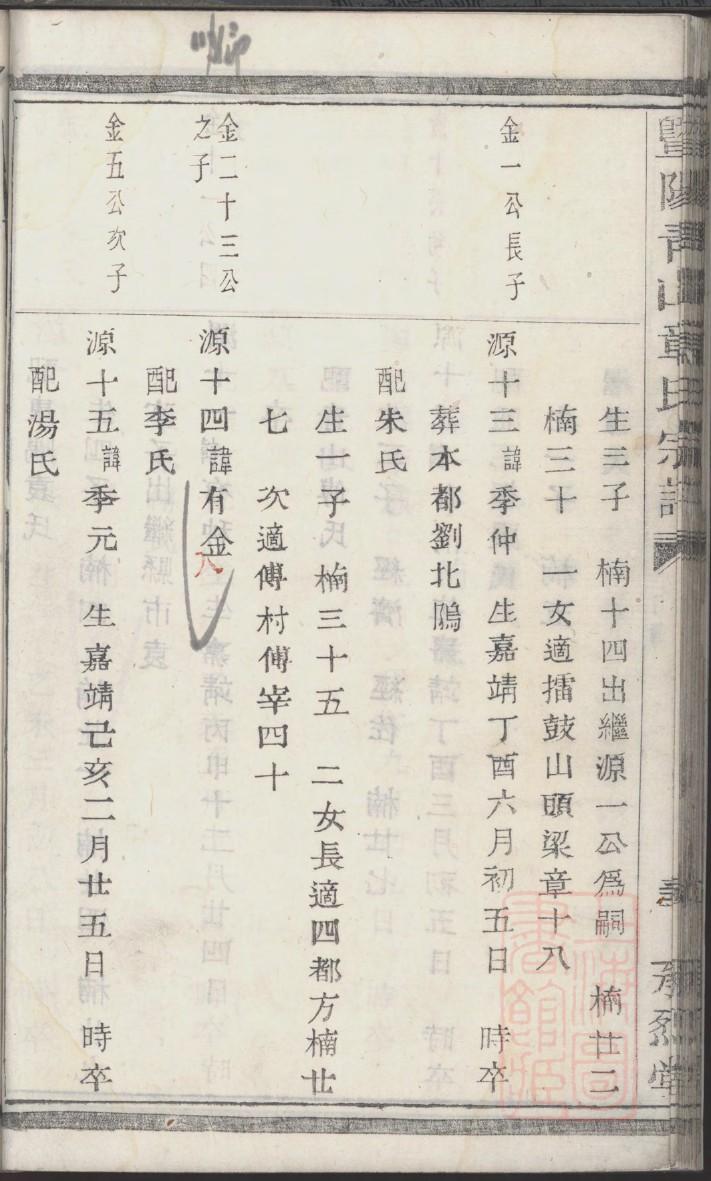 暨陽青山章氏宗譜
承烈堂
生三子 楠十四出繼源一公爲嗣 楠廿二
楠三十 一女適擂鼓山頭梁章十八
金一公長子
源十三諱季仲 生嘉靖丁酉六月初五日 時卒
葬本都劉北隖
配朱氏
生一子 楠三十五 二女長適四都方楠廿
七 次適傅村傅宰四十
金二十三公
之子
源十四諱有金
八
配李氏
金五公次子
源十五諱季元 生嘉靖己亥二月廿五日 時卒
配湯氏